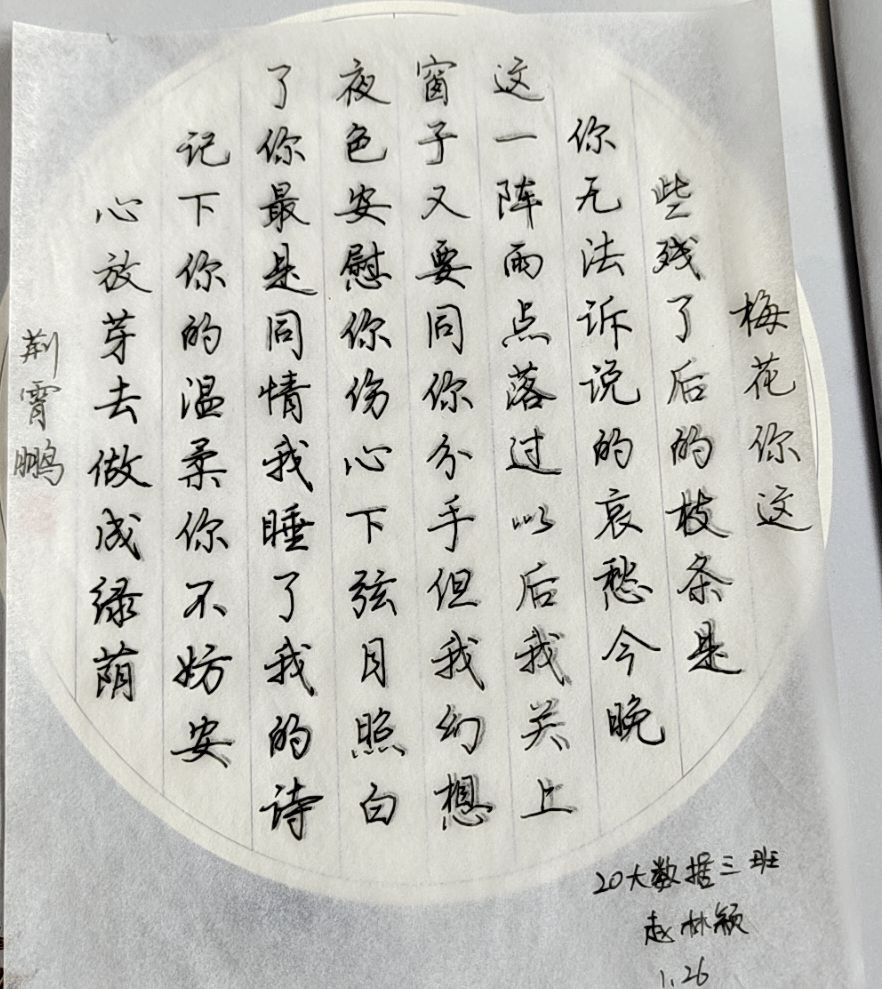 梅花你这
些残了后的枝条是
你无法诉说的哀愁今晚
这一阵雨点落过以后我关上
窗子又要同你分手但我幻想
夜色安慰你伤心下弦月照白
了你最是同情我睡了我的诗
记下你的温柔你不妨安
心放芽去做成绿荫
荆霄鹏
20大数据三班
赵林颖
1.26